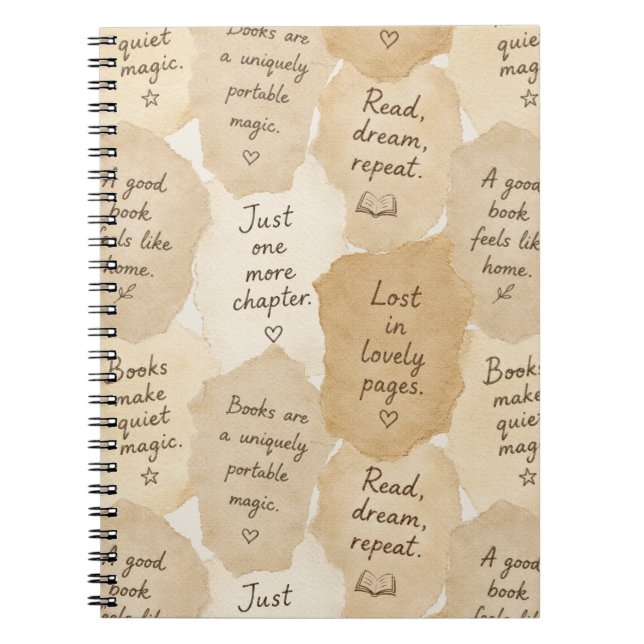 quiet
magic.
Books are
a uniquely
portable
magic.
Read,
dream,
repeat.
quiet
magic.
A good
book
feels like
home.
Just
one
more
chapter.
Lost
in
lovely
pages.
A good
book
feels like
home.
Books
make
quiet
magic.
Books are
a uniquely
portable
magic.
Read,
dream,
repeat.
Books
make
quiet
magic.
A good
book
feels like
Just
A good
book
feels like